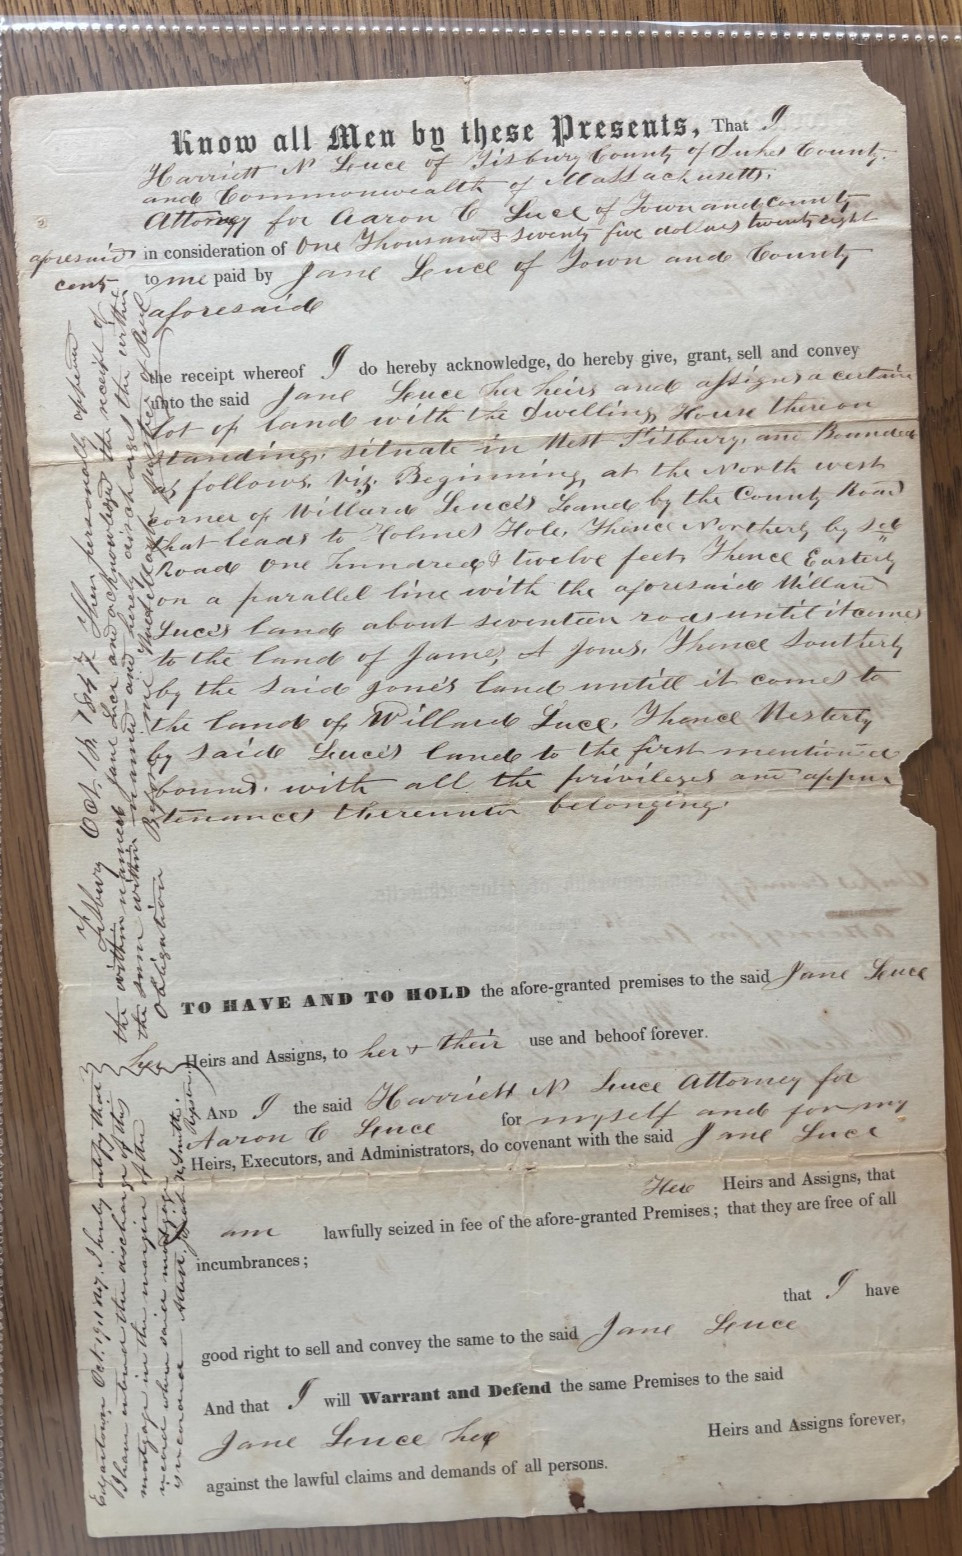 Know all Men by these Presents, That I
Harriett N Luce of Tisbury County of Dukes County.
and Commonwealth of Massachusetts.
Attorney for Aaron C Luce of Town and County
aforesaid in consideration of One Thousand & Seventy five dollars twenty eight
cents to me paid by Jane Luce of Town and County
aforesaid
the receipt whereof I do hereby acknowledge, do hereby give, grant, sell and convey
unto the said Jane Luce her heirs and assigns a certain
Lot of land with the Dwelling House thereon
standing, situate in West Tisbury, and Bounded
as follows. Viz. Beginning at the North west
corner of Willard Luce's Land by the County Road
that leads to Holmes Hole, Thence Northerly by sd
Road One hundred & twelve feet, Thence Easterly
on a parallel line with the aforesaid Willard
Luce's land about seventeen rods until it comes
to the land of James A Jones, Thence Southerly
by the said Jone's land untill it comes to
the land of Willard Luce, Thence Westerly
by said Luce's land to the first mentioned
bound. with all the privileges and appur
tenances thereunto belonging.
TO HAVE AND TO HOLD the afore-granted premises to the said Jane Luce
her Heirs and Assigns, to her & their use and behoof forever.
AND I the said Harriett N Luce Attorney for
Aaron C Luce for myself and for my
Heirs, Executors, and Administrators, do covenant with the said Jane Luce
Her Heirs and Assigns, that
am lawfully seized in fee of the afore-granted Premises; that they are free of all
incumbrances;
that I have
good right to sell and convey the same to the said Jane Luce
And that I will Warrant and Defend the same Premises to the said
Jane Luce her Heirs and Assigns forever,
against the lawful claims and demands of all persons.
Tisbury Oct. 1847 Then personally appeared
the within named Jane Luce and acknowledged the receipt of
the sum within named and hereby discharges the within
Obligation Before me
Edgartown Oct. 19 1847. I hereby certify that
I have entered the discharge of this
mortgage in the margin of the
record where said mortgage
is recorded Attest. Smith. Register